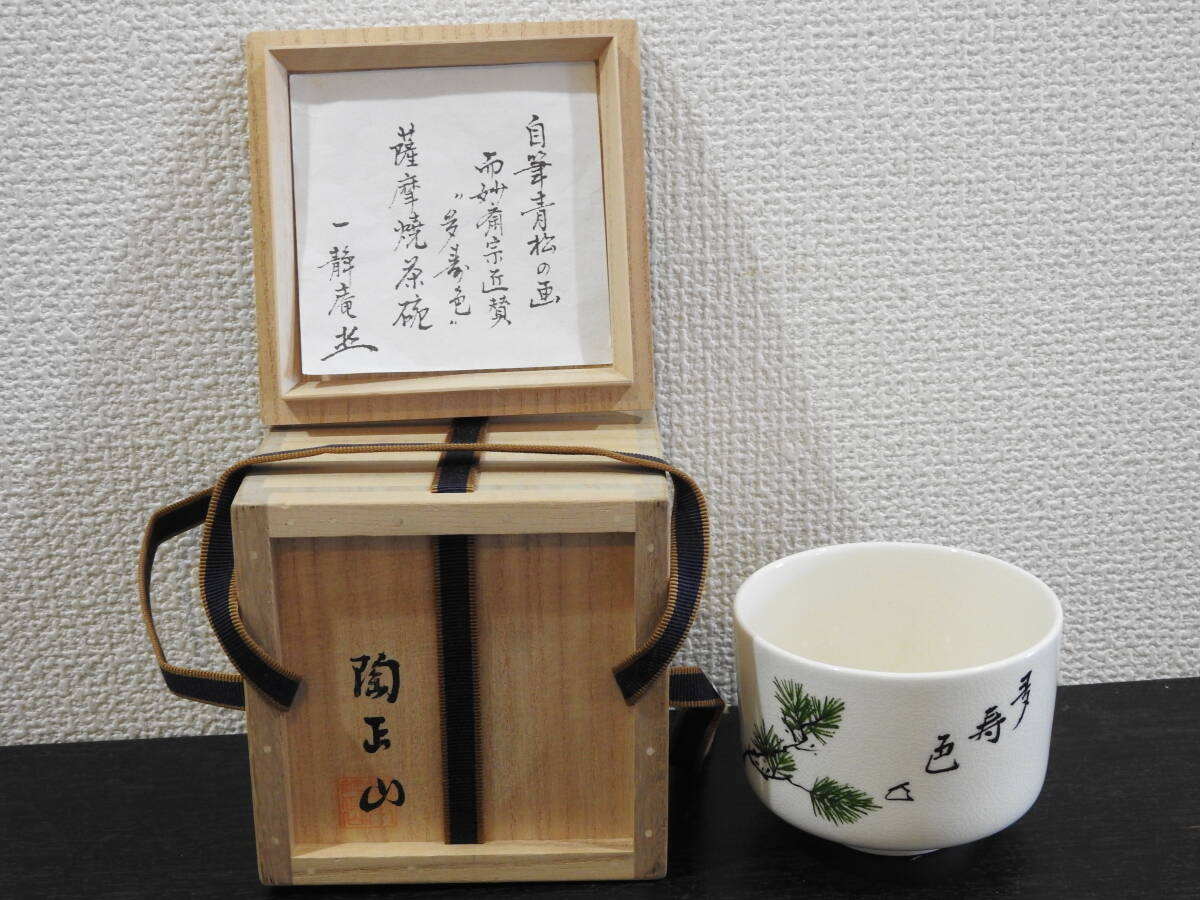 自筆青松の画
而妙斎宗匠賛
"多寿色"
薩摩焼茶碗
一静庵
陶正山
多寿色